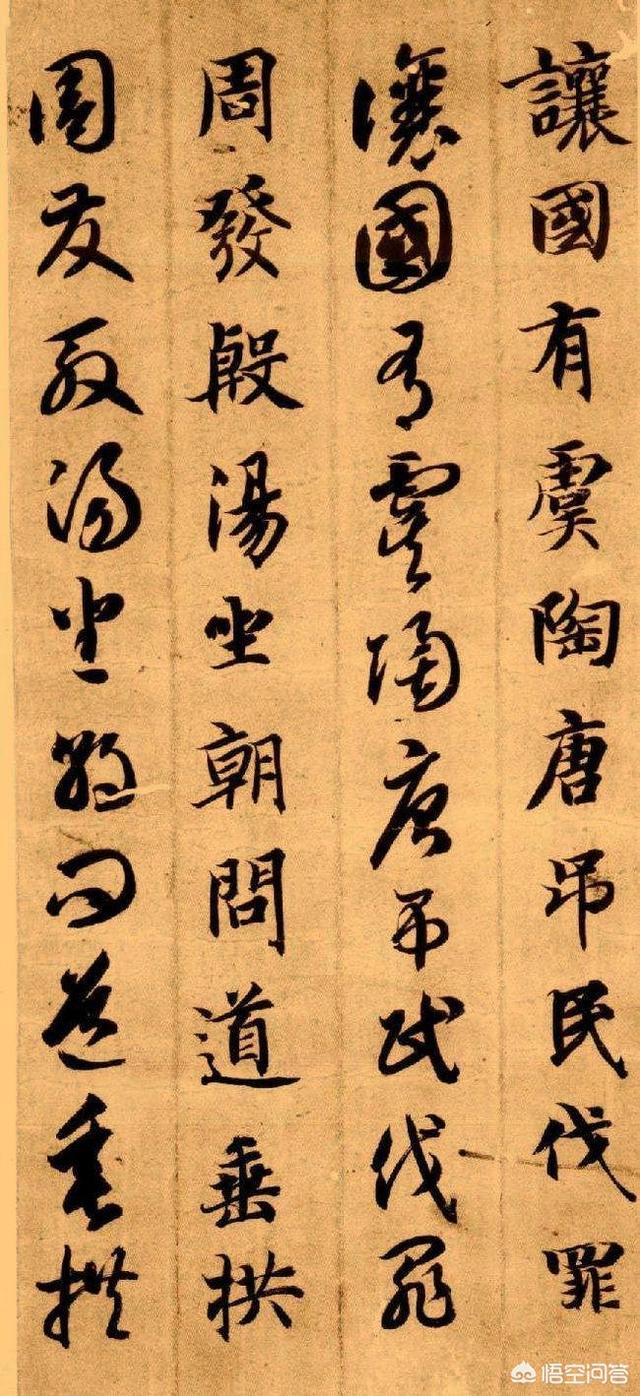 讓國有虞陶唐吊民伐罪
讓國有虞陶唐吊民伐罪
周發殷湯坐朝問道垂拱
周發殷湯坐朝問道垂拱
悟空问答